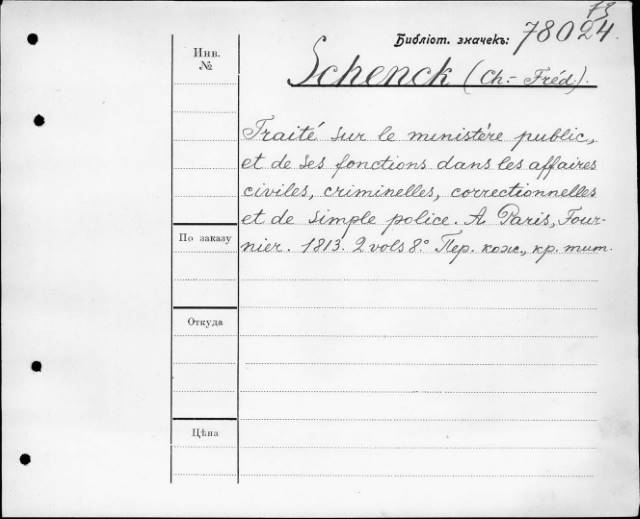 73
Библіот. значекъ: 78024.
Инв.
№
Schenck (Ch.- Fréd.).
Traité sur le ministère public,
et de ses fonctions dans les affaires
civiles, criminelles, correctionnelles
et de simple police. A Paris, Four-
По заказу
nier. 1813. 2 vols 8.° Пер. кож., кр. тит.
Откуда
Цѣна